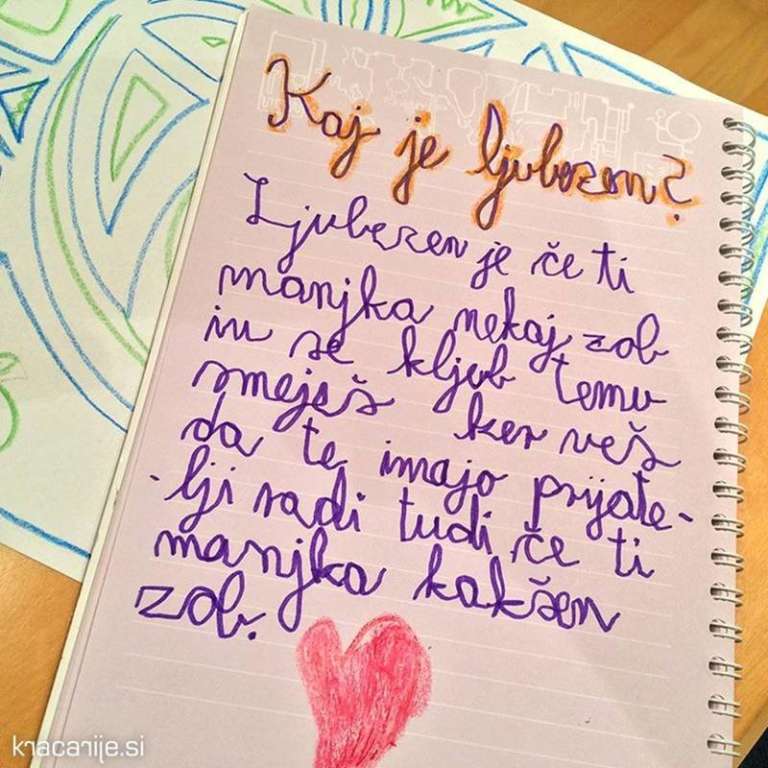 Kaj je ljubezen?
Ljubezen je če ti
manjka nekaj zob
in se kljub temu
smeješ ker veš
da te imajo prijate-
-lji radi tudi, če ti
manjka kakšen
zob.
kracarije.si